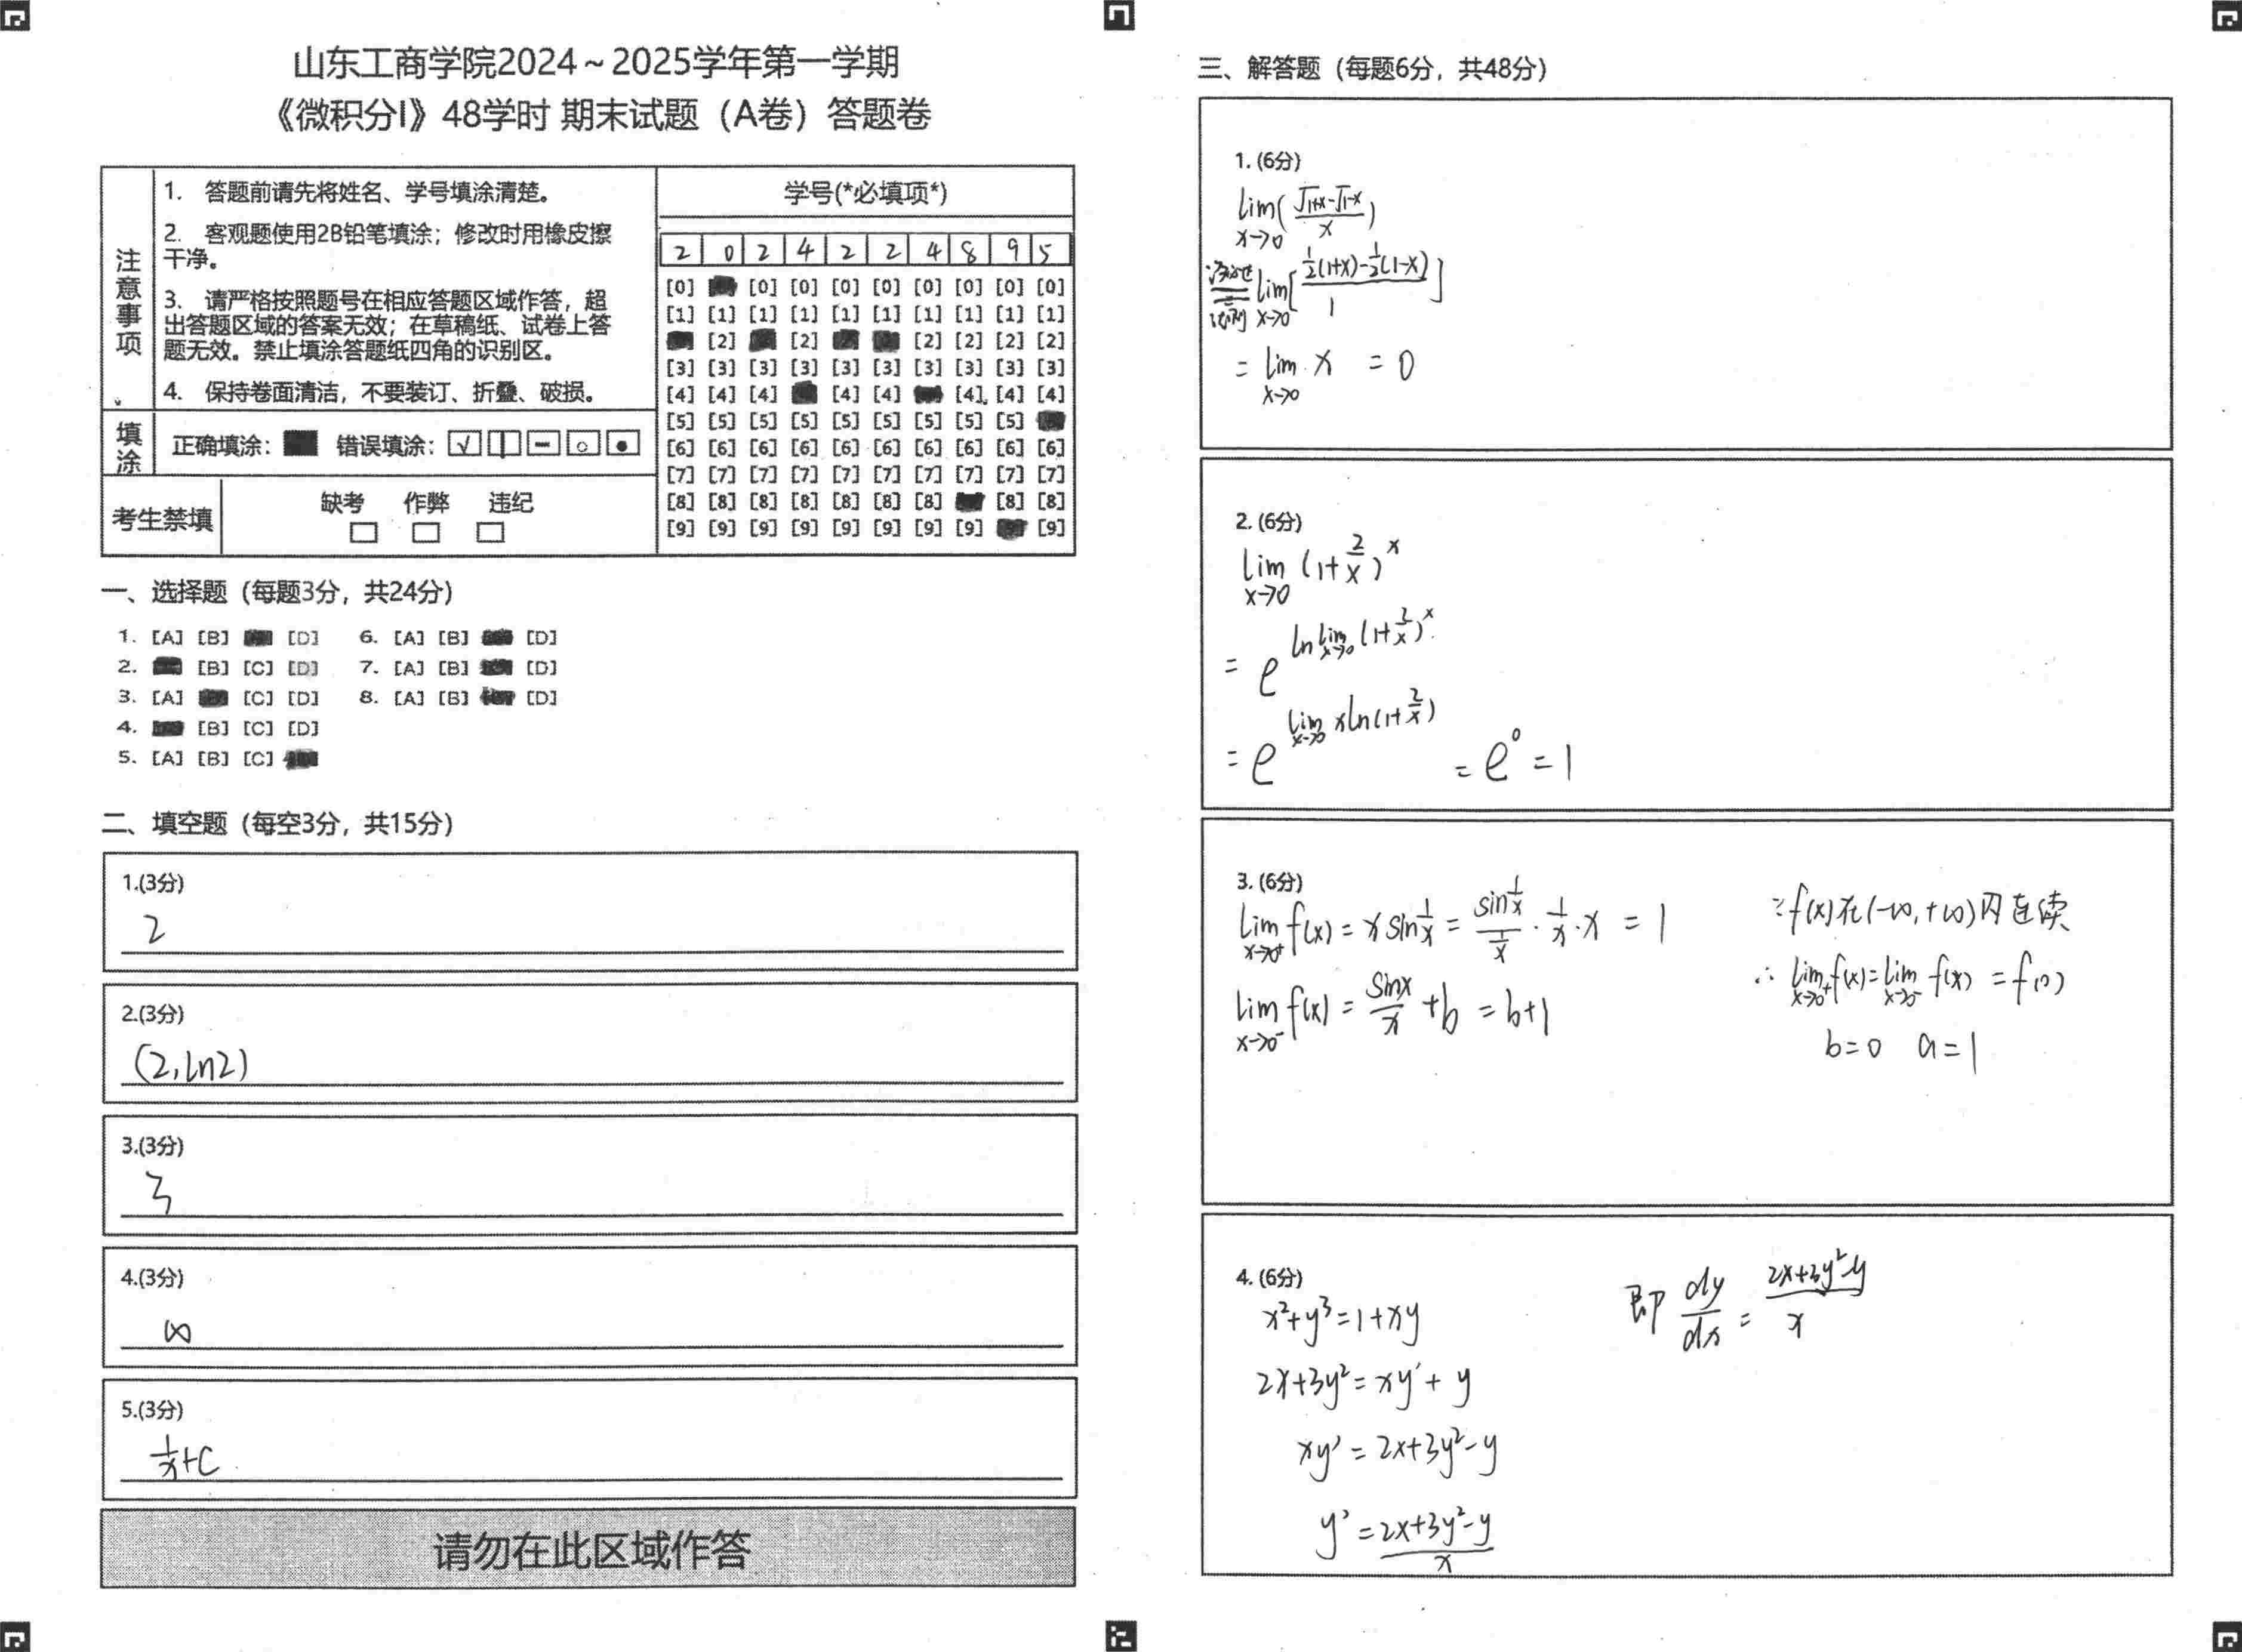 山东工商学院2024～2025学年第一学期
《微积分I》48学时 期末试题（A卷）答题卷
注意事项
1. 答题前请先将姓名、学号填涂清楚。
2. 客观题使用2B铅笔填涂；修改时用橡皮擦
干净。
3. 请严格按照题号在相应答题区域作答，超
出答题区域的答案无效；在草稿纸、试卷上答
题无效。禁止填涂答题纸四角的识别区。
4. 保持卷面清洁，不要装订、折叠、破损。
填涂 正确填涂： 错误填涂：
考生禁填 缺考 作弊 违纪
学号(*必填项*)
2 0 2 4 2 2 4 8 9 5
[0] [0] [0] [0] [0] [0] [0] [0] [0]
[1] [1] [1] [1] [1] [1] [1] [1] [1] [1]
[2] [2] [2] [2] [2] [2]
[3] [3] [3] [3] [3] [3] [3] [3] [3] [3]
[4] [4] [4] [4] [4] [4] [4] [4]
[5] [5] [5] [5] [5] [5] [5] [5] [5]
[6] [6] [6] [6] [6] [6] [6] [6] [6] [6]
[7] [7] [7] [7] [7] [7] [7] [7] [7] [7]
[8] [8] [8] [8] [8] [8] [8] [8] [8]
[9] [9] [9] [9] [9] [9] [9] [9] [9]
一、选择题（每题3分，共24分）
1. [A] [B] [D] 6. [A] [B] [D]
2. [B] [C] [D] 7. [A] [B] [D]
3. [A] [C] [D] 8. [A] [B] [D]
4. [B] [C] [D]
5. [A] [B] [C]
二、填空题（每空3分，共15分）
1.(3分)
2
2.(3分)
(2,ln2)
3.(3分)
3
4.(3分)
∞
5.(3分)
1/x+C
请勿在此区域作答
三、解答题（每题6分，共48分）
1. (6分)
lim x→0 (√1+x-√1-x / x)
洛必达法则 = lim x→0 [1/2(1+x)-1/2(1-x) / 1]
= lim x→0 x = 0
2. (6分)
lim x→0 (1+2/x)^x
= e^(ln lim x→0 (1+2/x)^x)
= e^(lim x→0 xln(1+2/x)) = e^0 = 1
3. (6分)
lim x→0+ f(x) = x sin1/x = sin1/x / 1/x · 1/x · x = 1
lim x→0- f(x) = sinx/x + b = b+1
∵f(x)在(-∞,+∞)内连续
∴ lim x→0+ f(x) = lim x→0- f(x) = f(0)
b=0 a=1
4. (6分)
x²+y³=1+xy
2x+3y²=xy'+y
xy'=2x+3y²-y
y'=2x+3y²-y / x
即 dy/dx = 2x+3y²-y / x